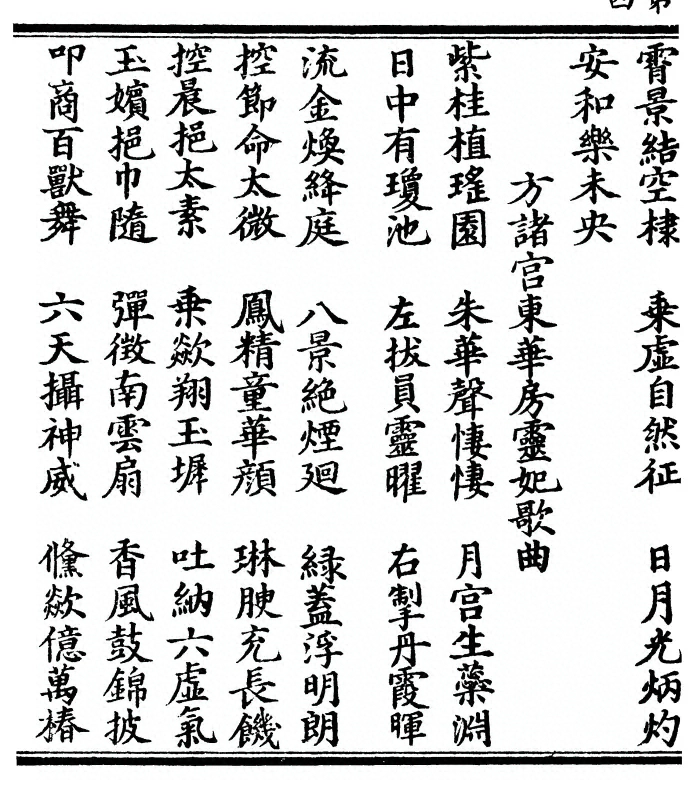 霄景結空棣　乗虛自然征　日月光炳灼
安和樂未央
方諸宫東華房靈妃歌曲
紫桂植瑤園　朱華聲悽悽　月宫生蘂淵
日中有瓊池　左拔員靈曜　右掣丹霞暉
流金煥絳庭　八景絶煙廻　緑蓋浮明朗
控節命太微　鳳精童華顔　琳腴充長饑
控晨挹太素　乗歘翔玉墀　吐納六虛氣
玉嬪挹巾隨　彈徴南雲扇　香風鼓錦披
叩商百獸舞　六天攝神威　儻歘億萬椿